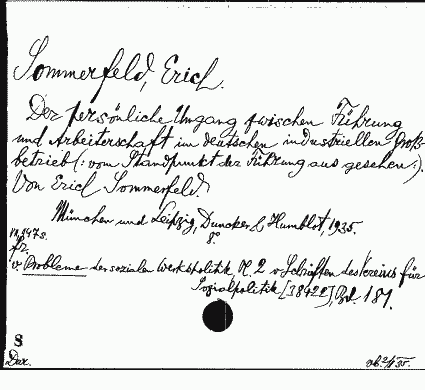 Sommerfeld, Erich.
Der persönliche Umgang zwischen Führung
und Arbeiterschaft im deutschen industriellen Groß-
betrieb (: vom Standpunkt der Führung aus gesehen :).
Von Erich Sommerfeld.
München und Leipzig, Duncker & Humblot, 1935.
8°
v. Probleme der sozialen Werkspolitik H. 2 v Schriften des Vereins für
Sozialpolitik [38422], Bd. 181.
8